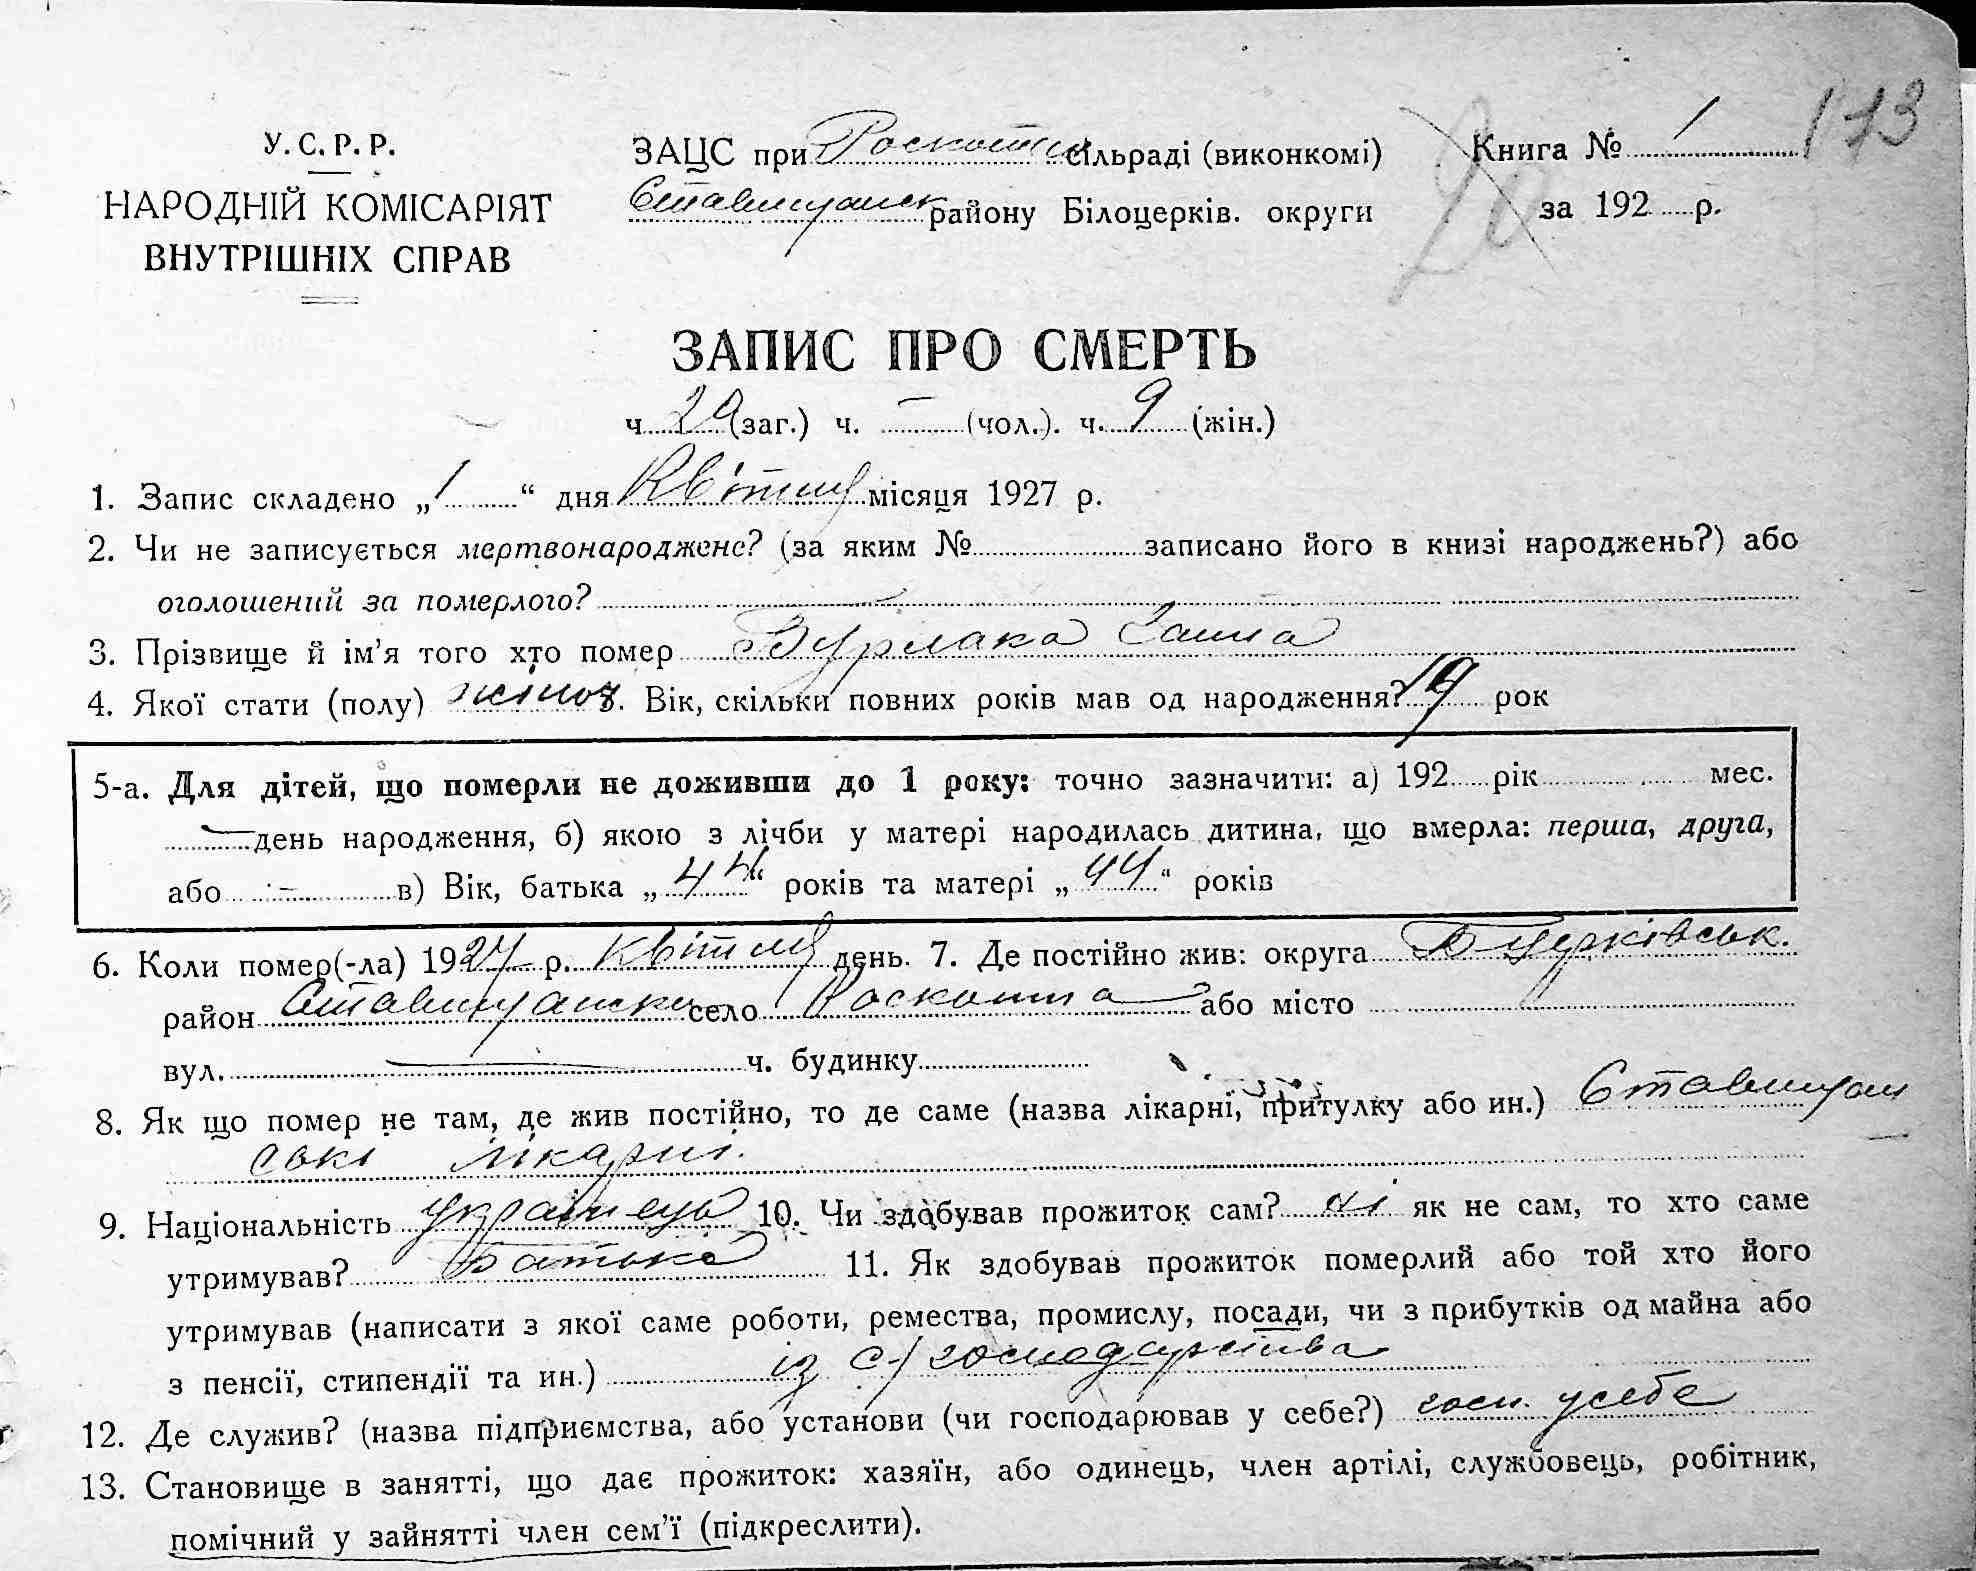 173
У. С. Р. Р.
НАРОДНІЙ КОМІСАРІЯТ
ВНУТРІШНІХ СПРАВ
ЗАЦС при сільраді (виконкомі)
Ставищанск району Білоцерків. округи
Книга № 1
за 192 р.
ЗАПИС ПРО СМЕРТЬ
ч. (заг.) ч. — (чол.). ч. 9 (жін.)
1. Запис складено „1“ дня Квітня місяця 1927 р.
2. Чи не записується мертвонароджене? (за яким № записано його в книзі народжень?) або
оголошений за померлого?
3. Прізвище й ім'я того хто помер Бурлака Ганна
4. Якої стати (полу) жіноч. Вік, скільки повних років мав од народження? 19 рок
5-а. Для дітей, що померли не доживши до 1 року: точно зазначити: а) 192 рік мес.
— день народження, б) якою з лічби у матері народилась дитина, що вмерла: перша, друга,
або — в) Вік, батька „44“ років та матері „44“ років
6. Коли помер(-ла) 1927 р. Квітня день. 7. Де постійно жив: округа Б Церківськ.
район Ставищанськ село Роскошна або місто
вул. — ч. будинку
8. Як що помер не там, де жив постійно, то де саме (назва лікарні, притулку або ин.) Ставищан
ські лікарні.
9. Національність українець 10. Чи здобував прожиток сам? ні як не сам, то хто саме
утримував? Батько 11. Як здобував прожиток померлий або той хто його
утримував (написати з якої саме роботи, ремества, промислу, посади, чи з прибутків од майна або
з пенсії, стипендії та ин.) із с/господарства
12. Де служив? (назва підприємства, або установи (чи господарював у себе?) госп. у себе
13. Становище в занятті, що дає прожиток: хазяїн, або одинець, член артілі, службовець, робітник,
помічний у зайнятті член сем'ї (підкреслити).